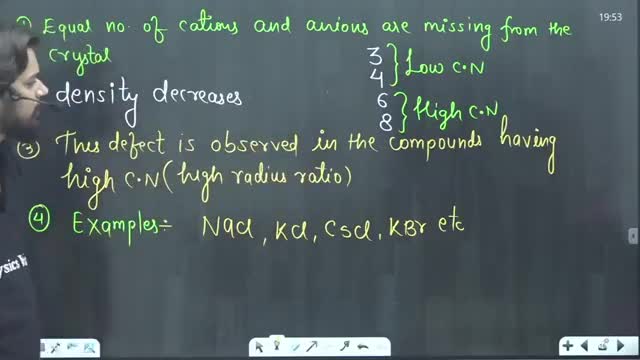 19:53
① Equal no. of cations and anions are missing from the
crystal
3
4 } Low C.N
density decreases
6
8 } High C.N
(3) This defect is observed in the compounds having
high C.N (high radius ratio)
④ Examples:- NaCl, KCl, CsCl, KBr etc